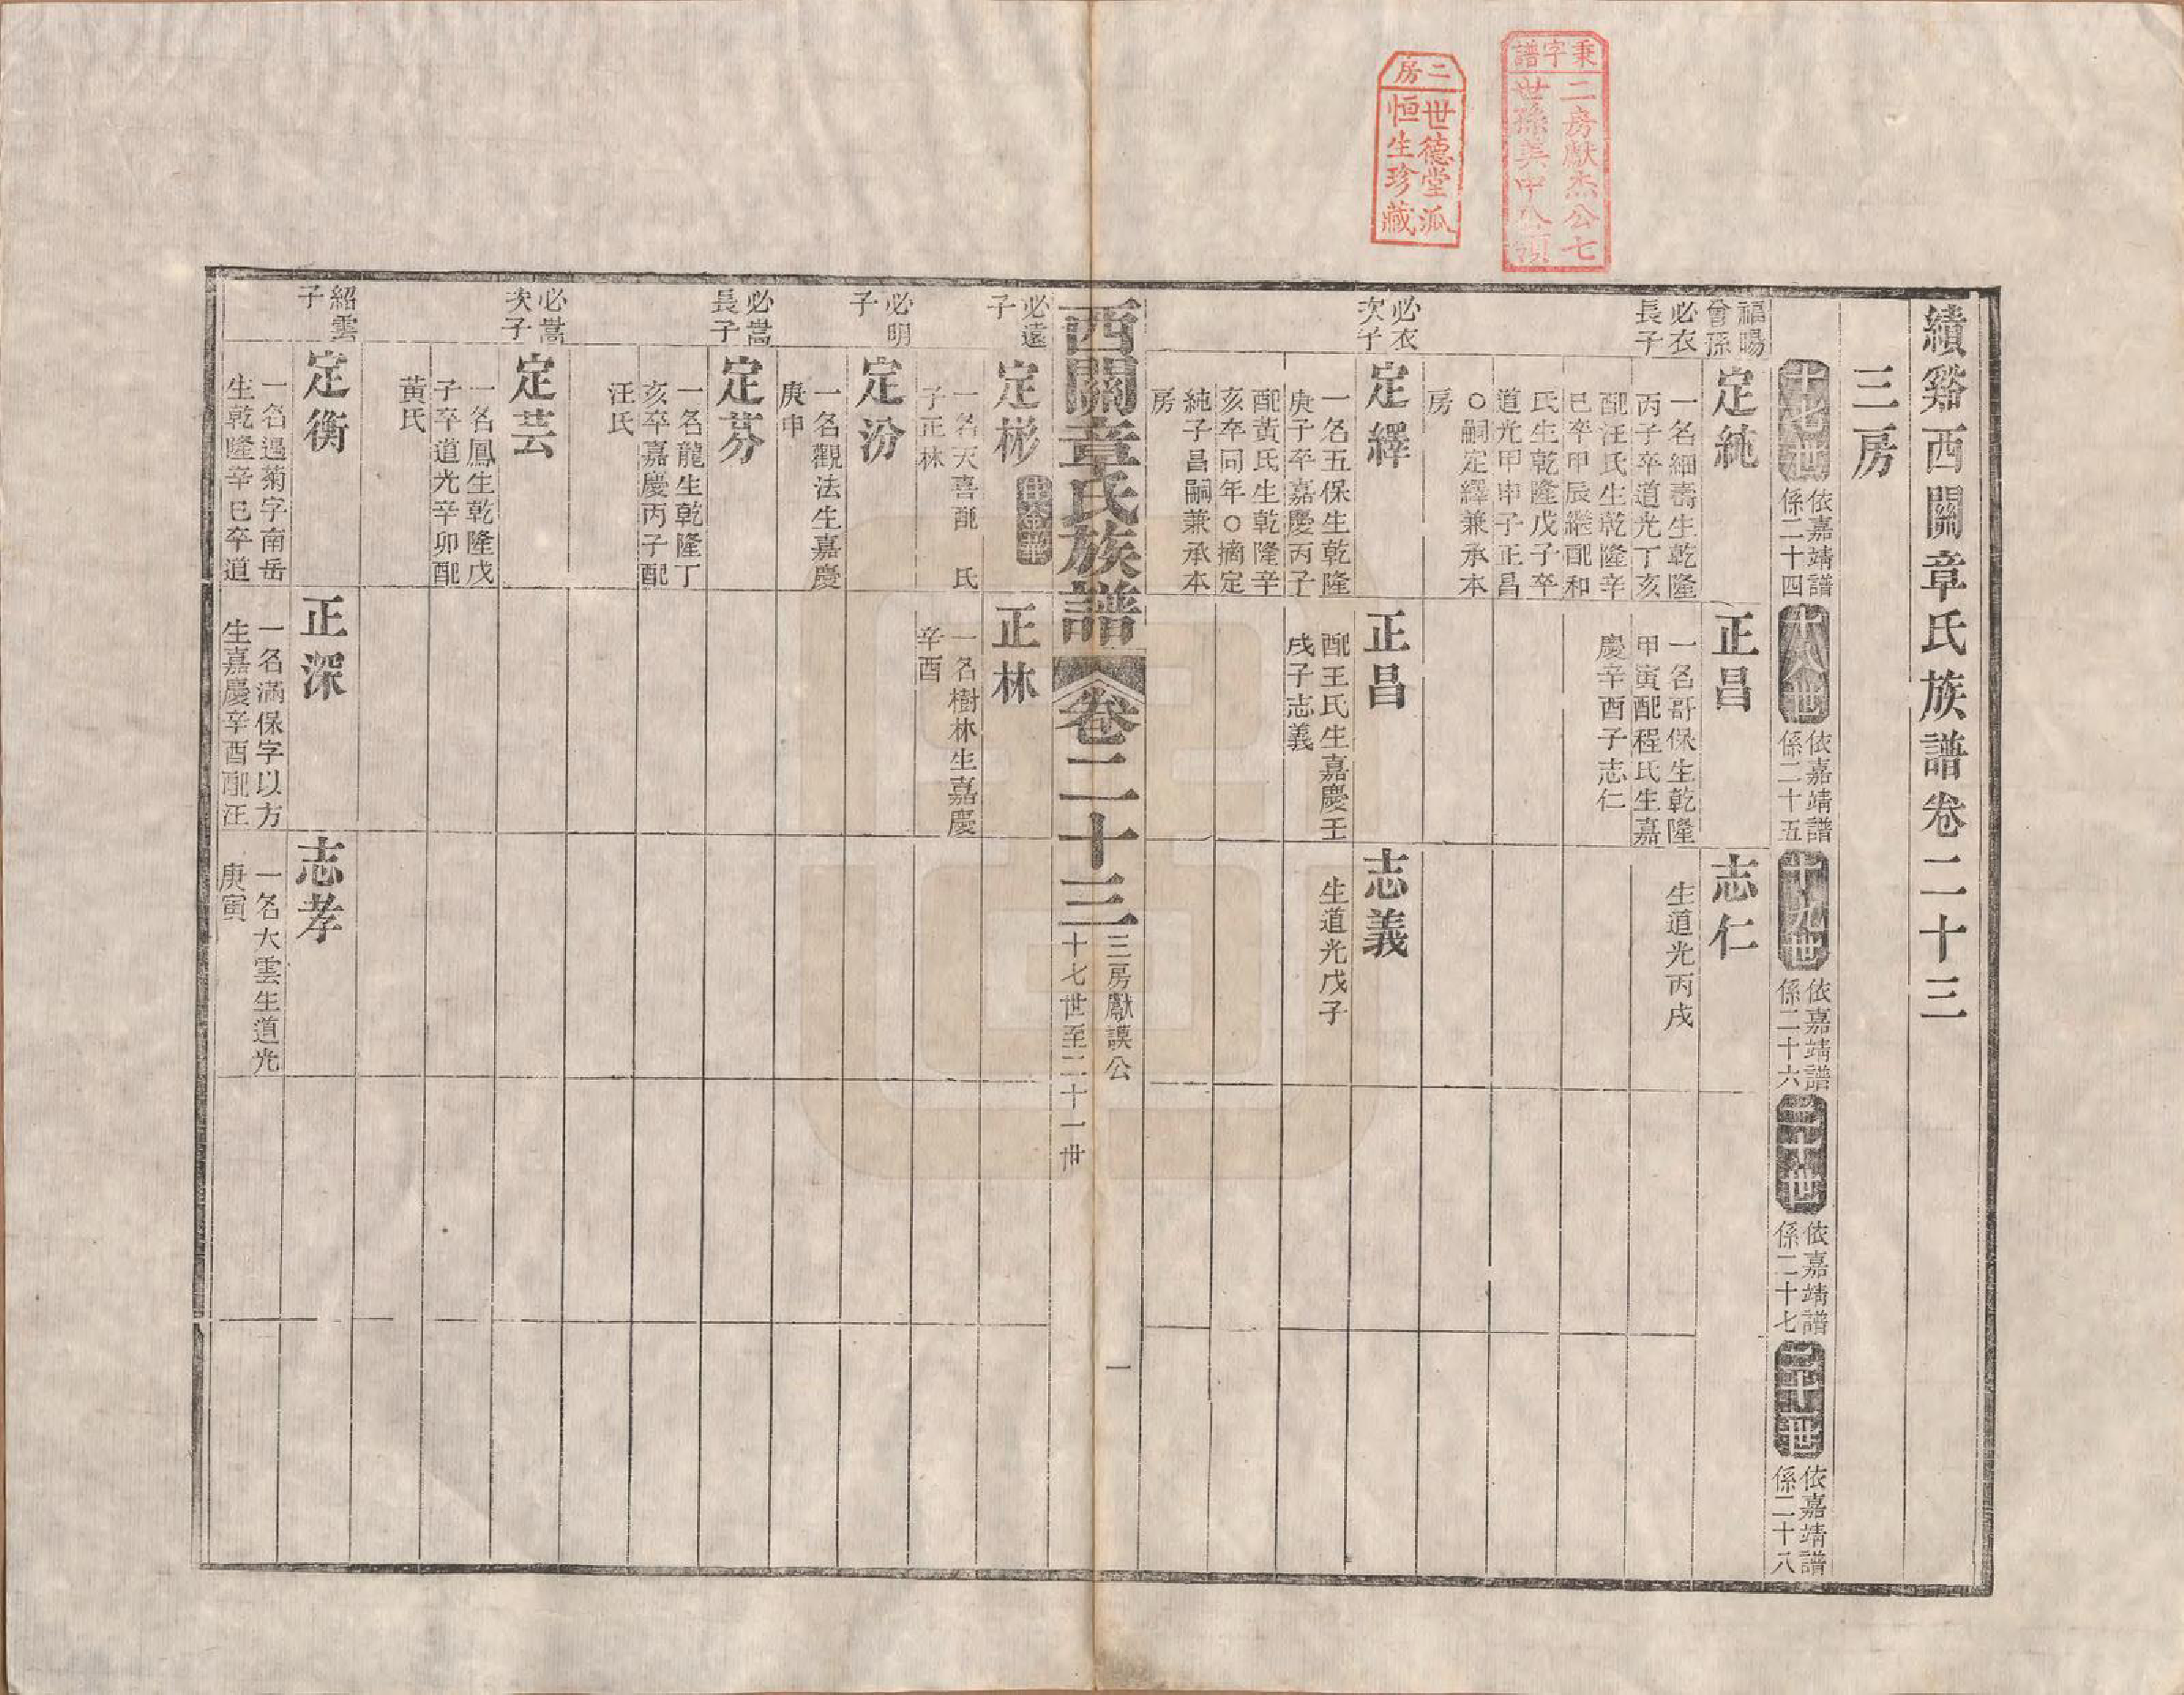 秉字譜
二房獻杰公七
世孫美中公領
二房
世德堂派
恒生珍藏
績谿西關章氏族譜卷二十三
三房
十七世
依嘉靖譜
係二十四
十八世
依嘉靖譜
係二十五
十九世
依嘉靖譜
係二十六
二十世
依嘉靖譜
係二十七
二十一世
依嘉靖譜
係二十八
福暘
曾孫
必衣
長子
定純
一名細壽生乾隆
丙子卒道光丁亥
配汪氏生乾隆辛
巳卒甲辰繼配和
氏生乾隆戊子卒
道光甲申子正昌
○嗣定繹兼承本
房
正昌
一名哥保生乾隆
甲寅配程氏生嘉
慶辛酉子志仁
志仁
生道光丙戌
必衣
次子
定繹
一名五保生乾隆
庚子卒嘉慶丙子
配黃氏生乾隆辛
亥卒同年○摘定
純子昌嗣兼承本
房
正昌
配王氏生嘉慶壬
戌子志義
志義
生道光戊子
西關章氏族譜
卷二十三
三房獻謨公
十七世至二十一世
一
必遠
子
定彬
住金華
一名天喜配 氏
子正林
正林
一名樹林生嘉慶
辛酉
必明
子
定汾
一名觀法生嘉慶
庚申
必嵩
長子
定芬
一名龍生乾隆丁
亥卒嘉慶丙子配
汪氏
必嵩
次子
定芸
一名鳳生乾隆戊
子卒道光辛卯配
黃氏
紹雲
子
定衡
一名遇菊字南岳
生乾隆辛巳卒道
正深
一名滿保字以方
生嘉慶辛酉配汪
志孝
一名大雲生道光
庚寅